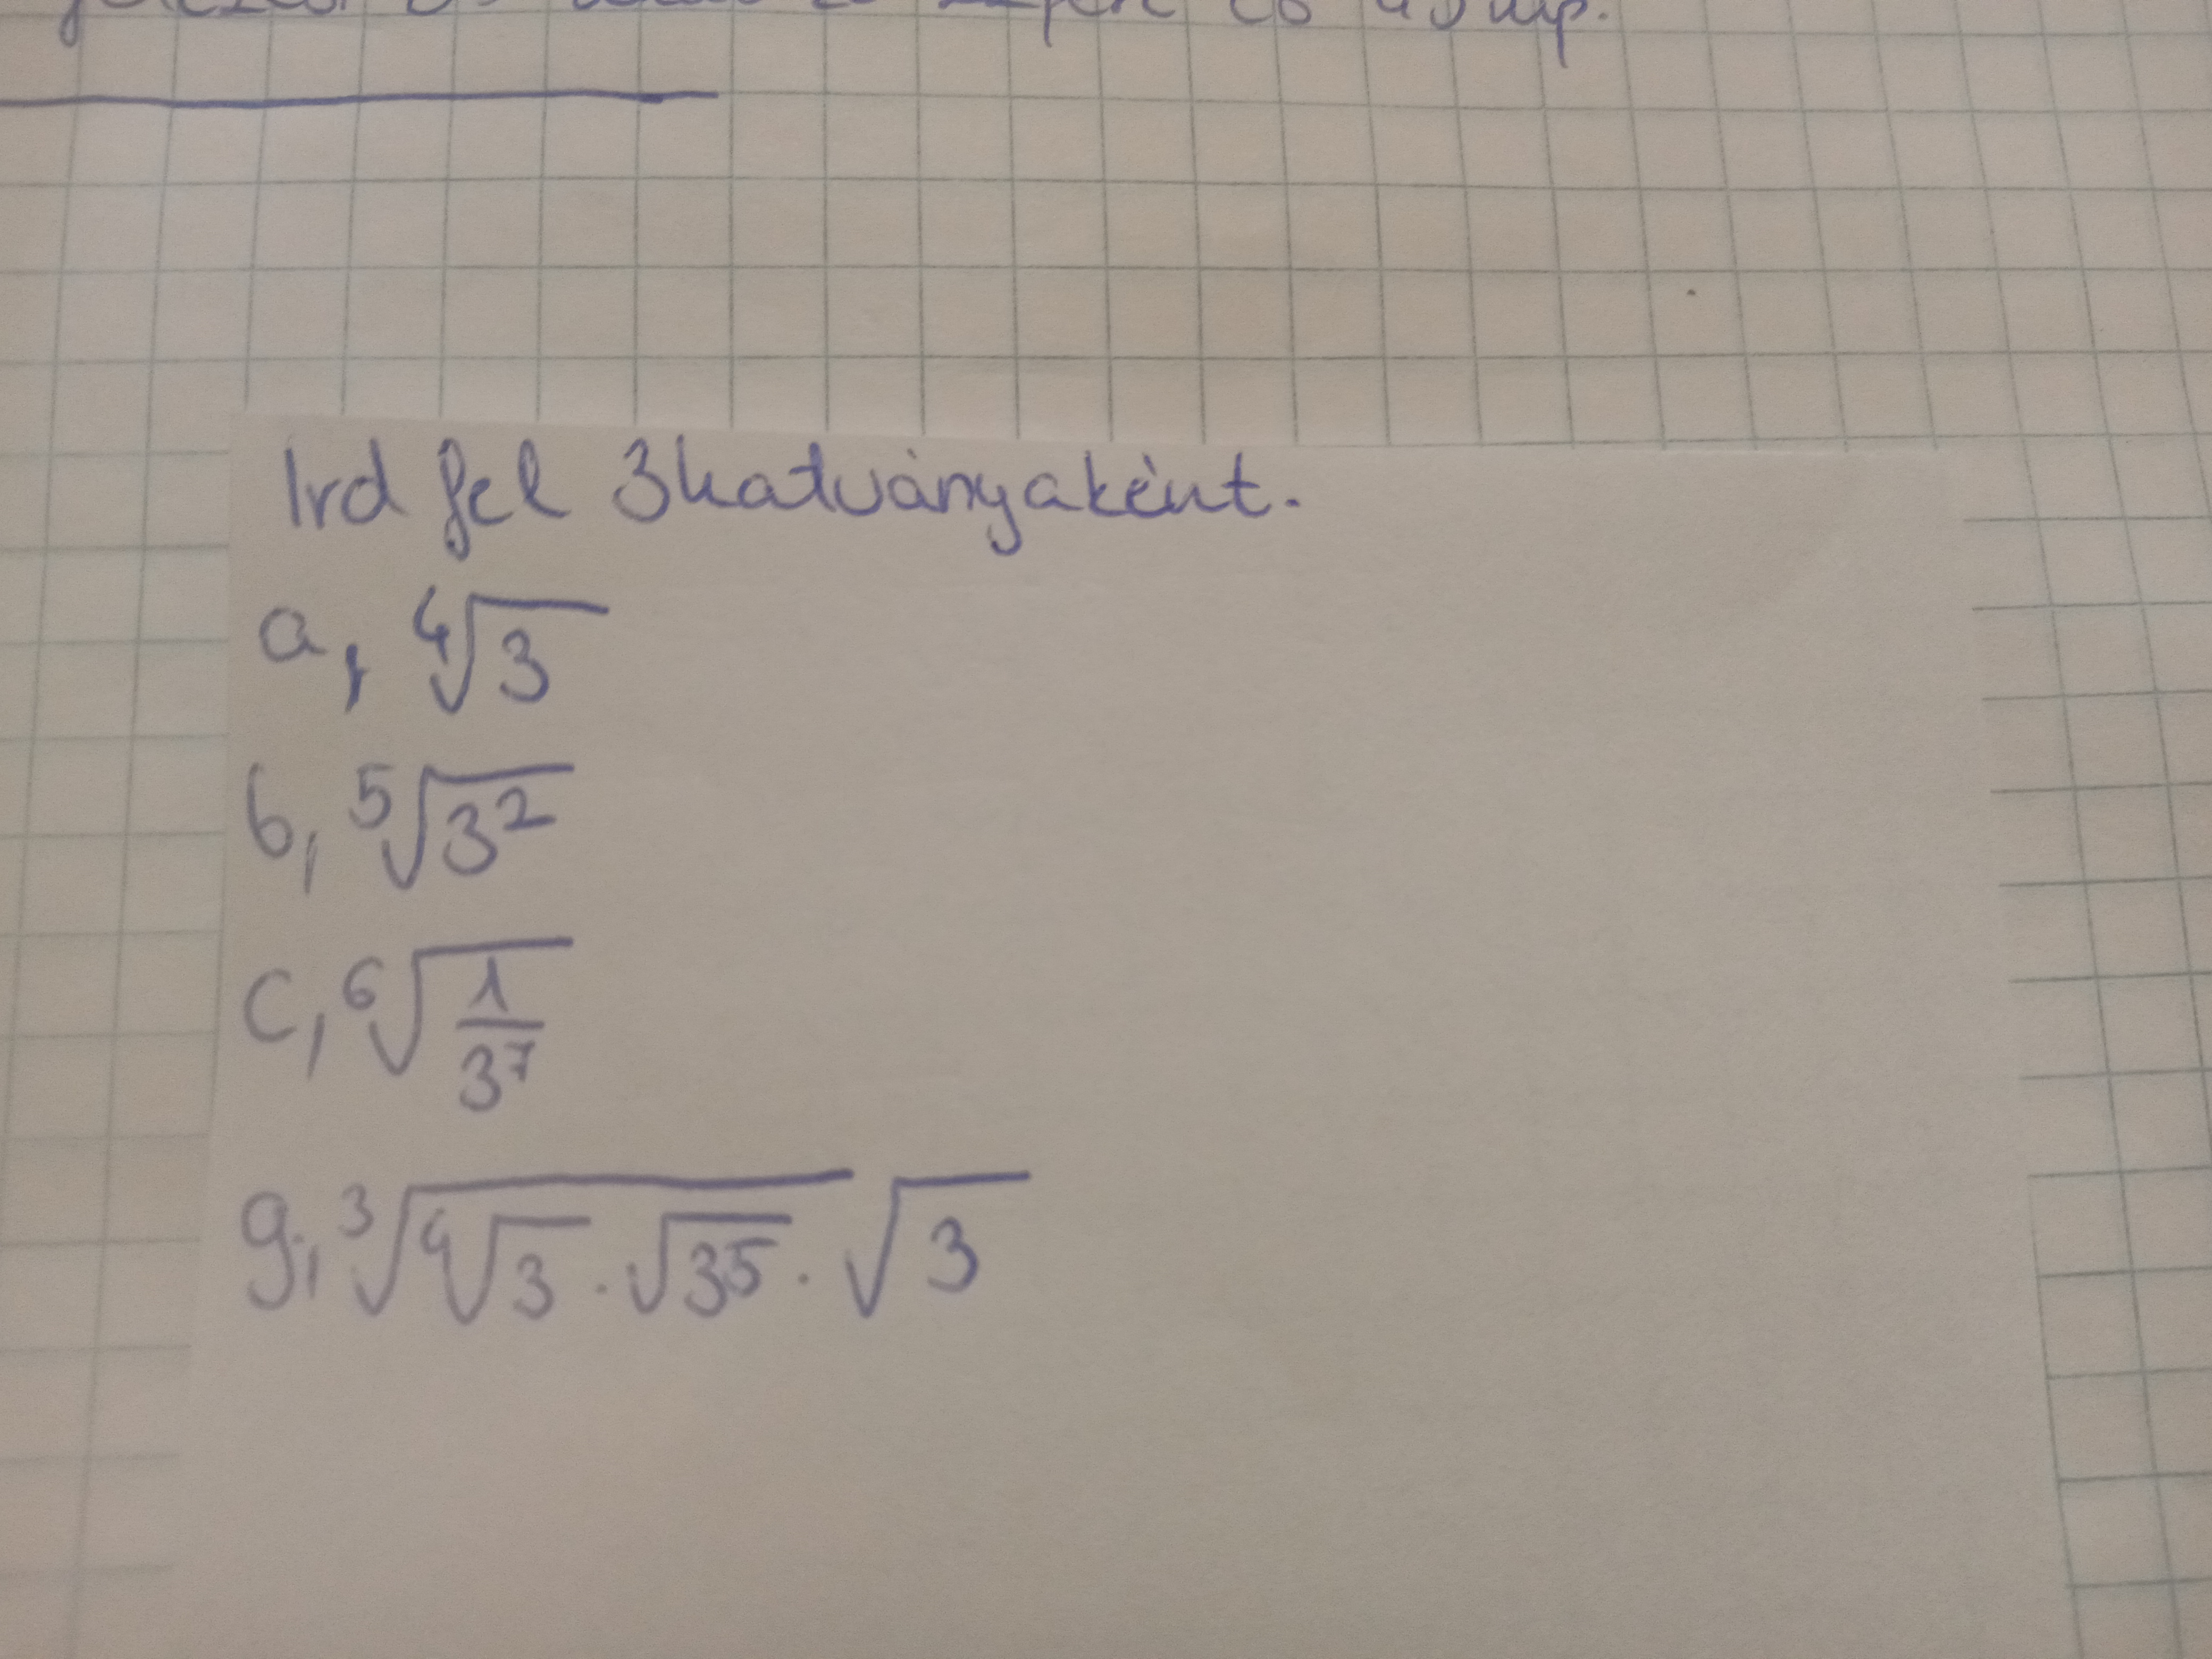 Ird fel 3hatványaként.
a, ⁴√3
b, ⁵√3²
c, ⁶√(1/3⁷)
g, ³√(⁴√3 · √35) · √3